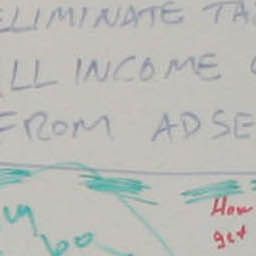 ELIMINATE TA
LL INCOME
FROM ADSE
How
get